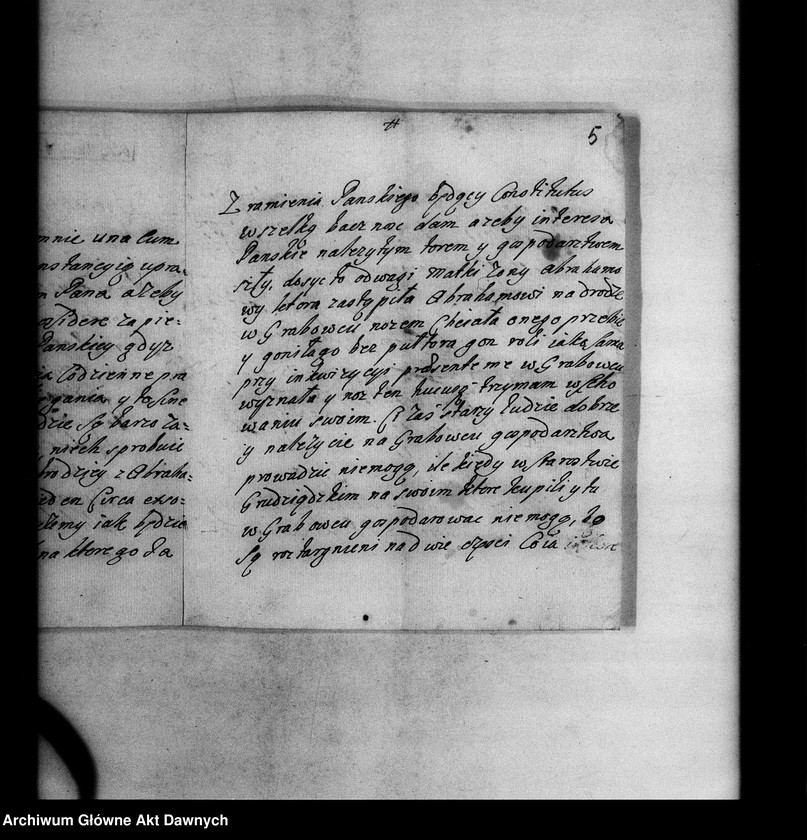 5
mnie una cum
nstancyią upra
m Pana azeby
asidere za pie=
Panskiey gdyz
ia codzienne pra
egania y tosme
dzie są barzo za=
nich sprobuie
brodziey z Abraha=
ieden Circa exso=
elamy iak będzie
na ktorego da
Z ramienia Panskiego będący Constitutus
wszelką bacznosc dam azeby interessa
Panskie nalezytym torem y gospodarstwem
szły. dosyc to odwagi Matki zony Abrahamo
wy ktora zastąpiła Abrahamowi na drodze
w Grabowcu nozem Chciała onego przebic
y goniłago bez pułtora gon roli iako sama
przy inkwizycyi presente me w Grabowcu
wyznała y noz ten hucusq trzymam w scho
waniu swoim. Ci zas starzy ludzie dobrze
y nalezycie na Grabowcu gospodarstwa
prowadzic niemogą, ile kiedy w starostwie
Grudziądzkim na swoim ktore kupili y tu
w Grabowcu gospodarowac niemogą, bo
są roztargnieni na dwie częsci Co ia
Archiwum Główne Akt Dawnych